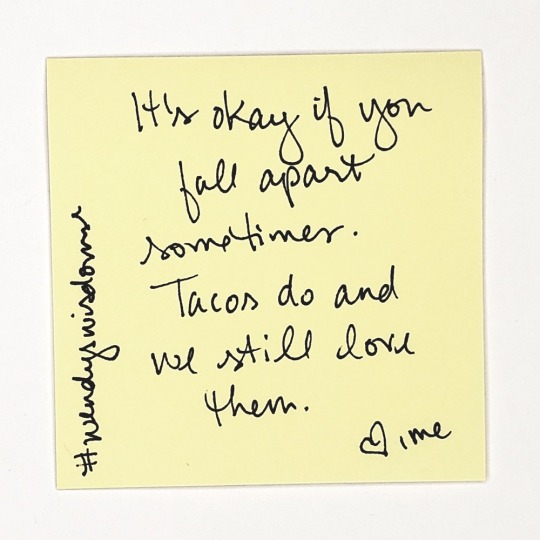 It's okay if you
fall apart
sometimes.
Tacos do and
we still love
them.
♡, me
#wendyswisdoms